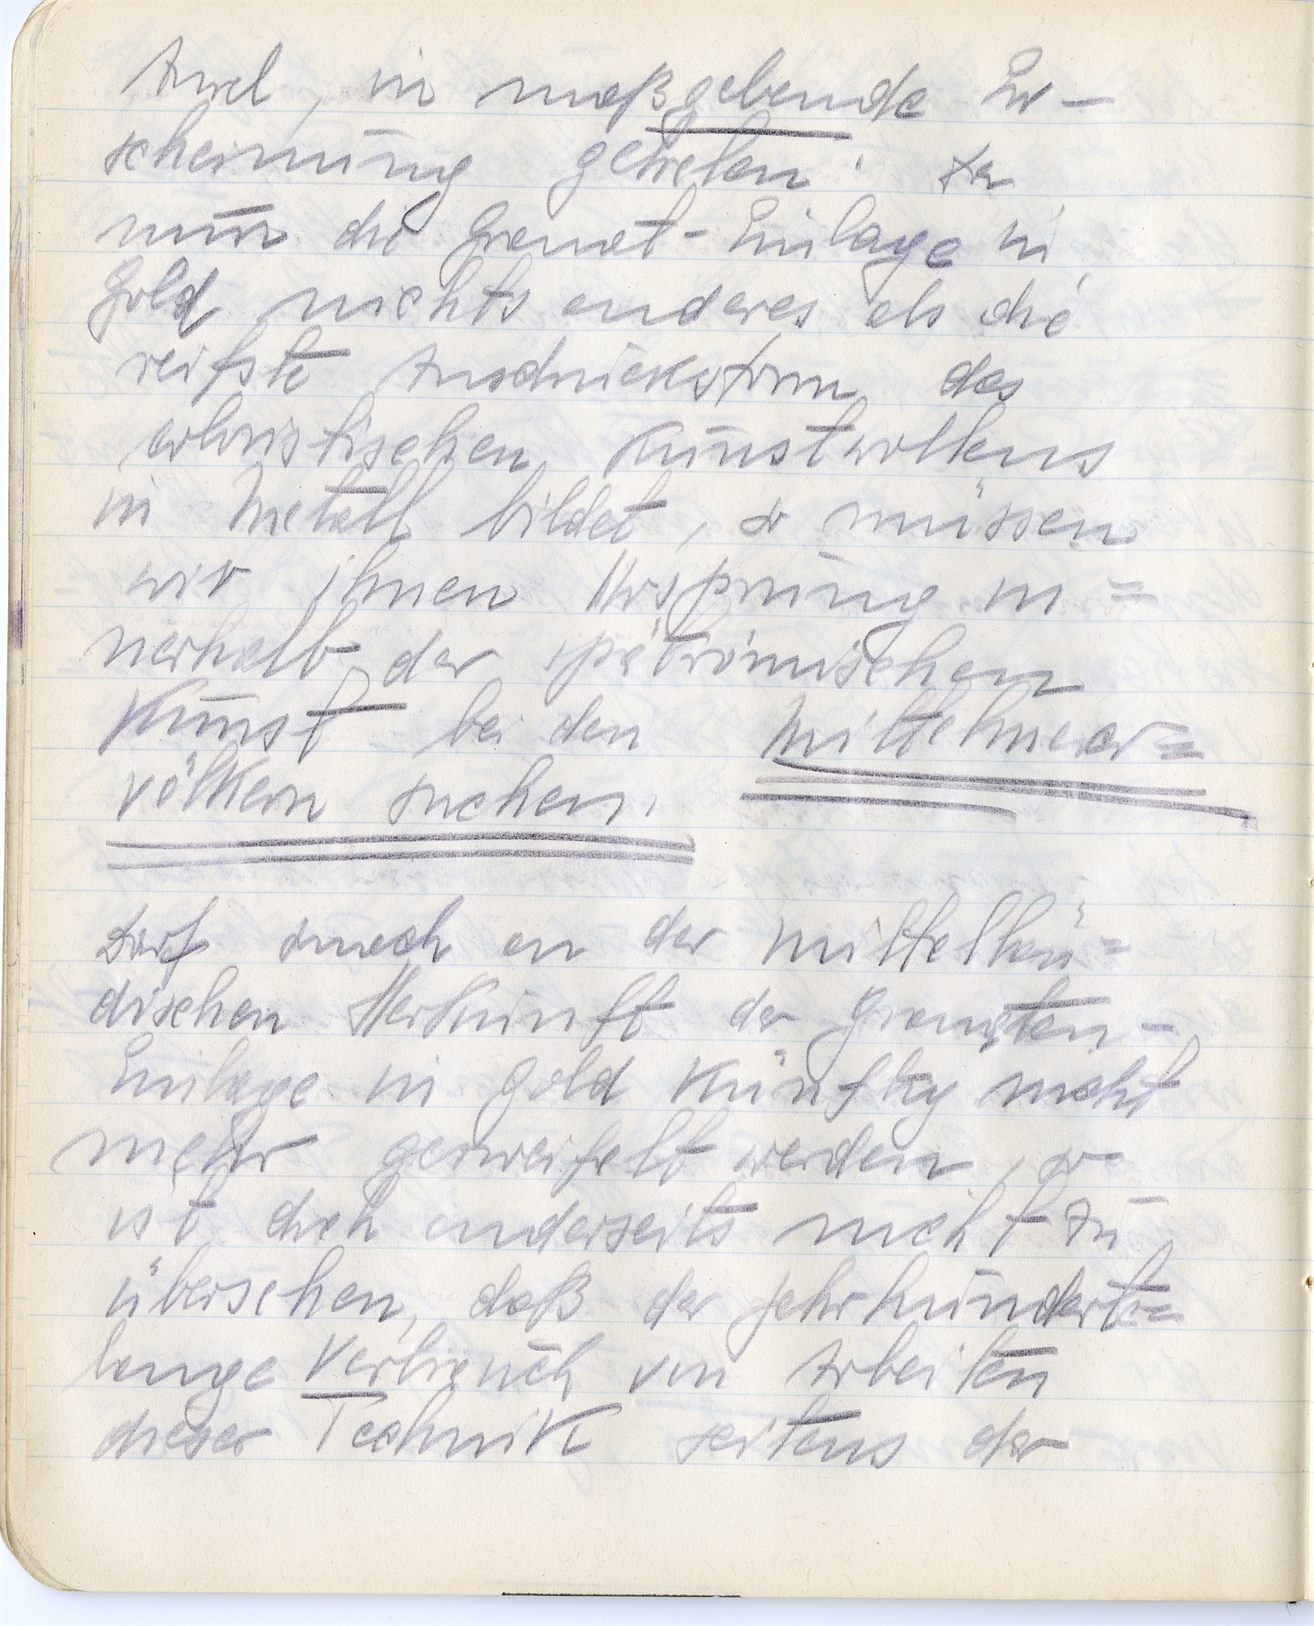 in maßgebende Er-
scheinung getreten. Da
nun die Granat-Einlage in
Gold nichts anderes als die
reifste Ausdrucksform des
koloristischen Kunstwollens
in Metall bildet, so müssen
wir ihnen Ursprung in=
nerhalb der spätrömischen
Kunst bei den Mittelmeer=
völkern suchen.
Darf auch an der mittellän=
dischen Herkunft der Granaten-
Einlage in Gold künftig nicht
mehr gezweifelt werden, so
ist doch anderseits nicht zu
übersehen, daß der jahrhunderte=
lange Verbrauch von Arbeiten
dieser Technik seitens der